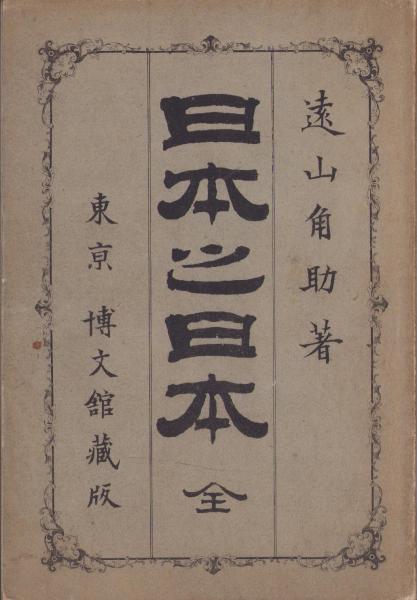 遠山角助著
日本之日本 全
東亰 博文館藏版